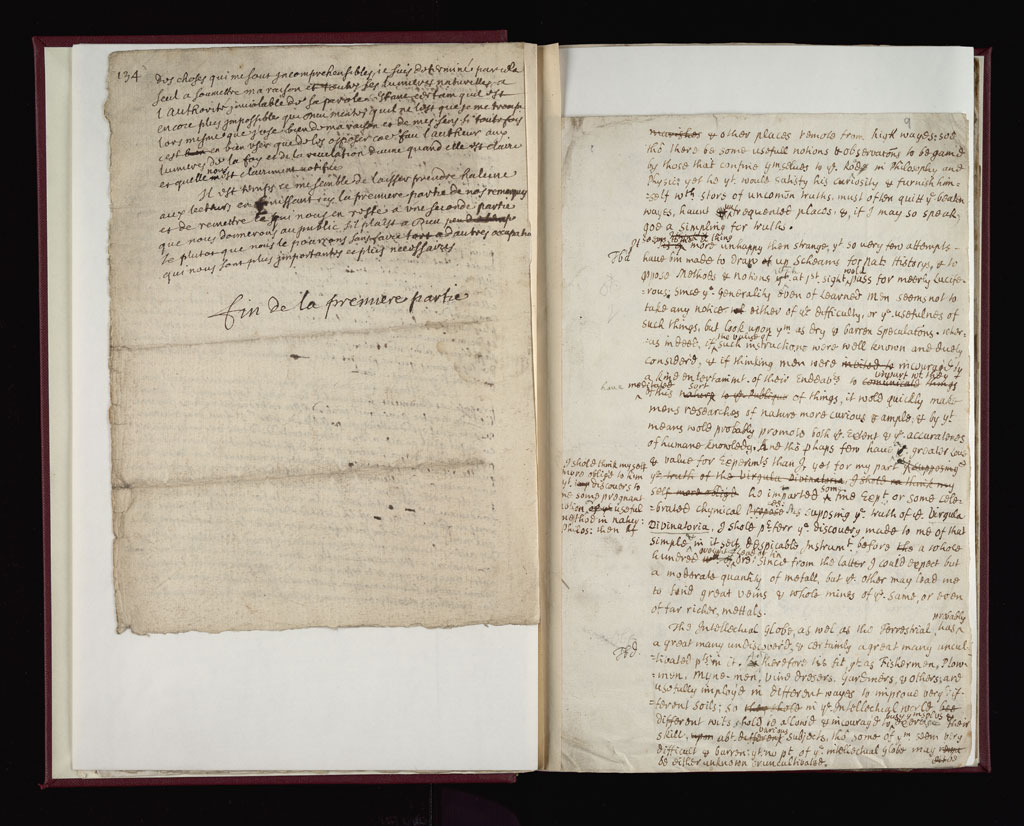 134
Des choses qui me sont jncomprehensibles, je suis determiné par cela
seul a soumettre ma raison et toutes ses lumieres naturelles, a
l'Authorité jnviolable de sa parole. estant certain quil est
encore plus jmpossible que
lors mesme que j'use bien de ma raison et de mes sens si toutefois
c'est en bien user que de les opposer
lumieres de la foy et de la revelation divine quand elle est claire
et quelle nous est clairement notifiée
Il est temps ce me semble de laisser prendre haleine
aux lecteurs en finissant icy la premiere partie de nos remarques
et de remettre ce qui nous en reste a une seconde partie
que nous donnerons au public, s'il plaist a Dieu
le plutot que nous le pourrons sans faire tort a d'autres occupations
qui nous sont plus jmportantes et plus necessaires.
Fin de la premiere partie
9
& other places remote from high wayes: soe
thō there be some usefull notions & observatōns to be gain'd
by those that confine ymselves to ye. Rode in Philosophy and
Physic; yet he yt. would satisfy his curiosity & furnish him=
=self wth. store of uncom̄on truths, must often quitt ye beaten
wayes, haunt unfrequented places, &, if I may so speak,
goe a simpling for truths.
more unhappy then strange, yt so very few attempts
have bin made to draw up Scheams for Nat: History, & to
propose Methods & notions yt. at pst. sight, wold pass for meerly Lucife=
=rous; since ye. Generality even of Learned Men seems not to
take any notice either of ye difficulty, or ye. usefulnes of
such things, but look upon ym as dry & barren speculatōns. wher=
=as indeed, if the value of such instructions were well known and duely
considerd, & if thinking men were invited to incouraged by
a kind entertainmt. of their Endeavrs to impart wt they
have meditated of this sort of things, it wold quickly make
mens researches of nature more curious & ample, & by yt
means wold probably promote both ye. Extent & ye. accuratenes
of humane knowledg. And thō phaps few have greater love
& value for Experimts than I, yet for my part
ye. truth of the Virgula Divinatoria, I shold think my
self more oblig'd to imparted some fine Expt. or some cele=
=brated Chymical supposing ye. truth of ye. Virgula
Divinatoria, I shold prferr ye. discovery made to me of that
simple, & in it self despicable Instrumt. before a whole
hundred weight of lead or tin ; since from the latter I could expect but
a moderate quantity of metall, but ye. other may lead me
to find great veins & whole mines of ye. same, or even
of far richer, mettals.
I shold think my self
more oblig'd to him
yt. discovers to
me some pregnant
notion or usefull
method in natur:
Philos: then if
The Intellectual Globe, as well as the Terrestrial, has probably
a great many undiscoverd, & certainly a great many uncul=
=tivated pts. in it. therefore tis fit, yt. as Fishermen, Plow=
=men, Myne-men, Vine dressers, Gardiners, & others, are
usefully imployd in different wayes to improve very dif=
=ferent Soiles: so in ye. Intellectual world
different wits shold be allowd & incouragd to exercise their
skill, abt. various subjects, thō some of ym seem very
difficult & barren: yt. no pt. of ye. intellectual globe may
be either unknown or uncultivated.